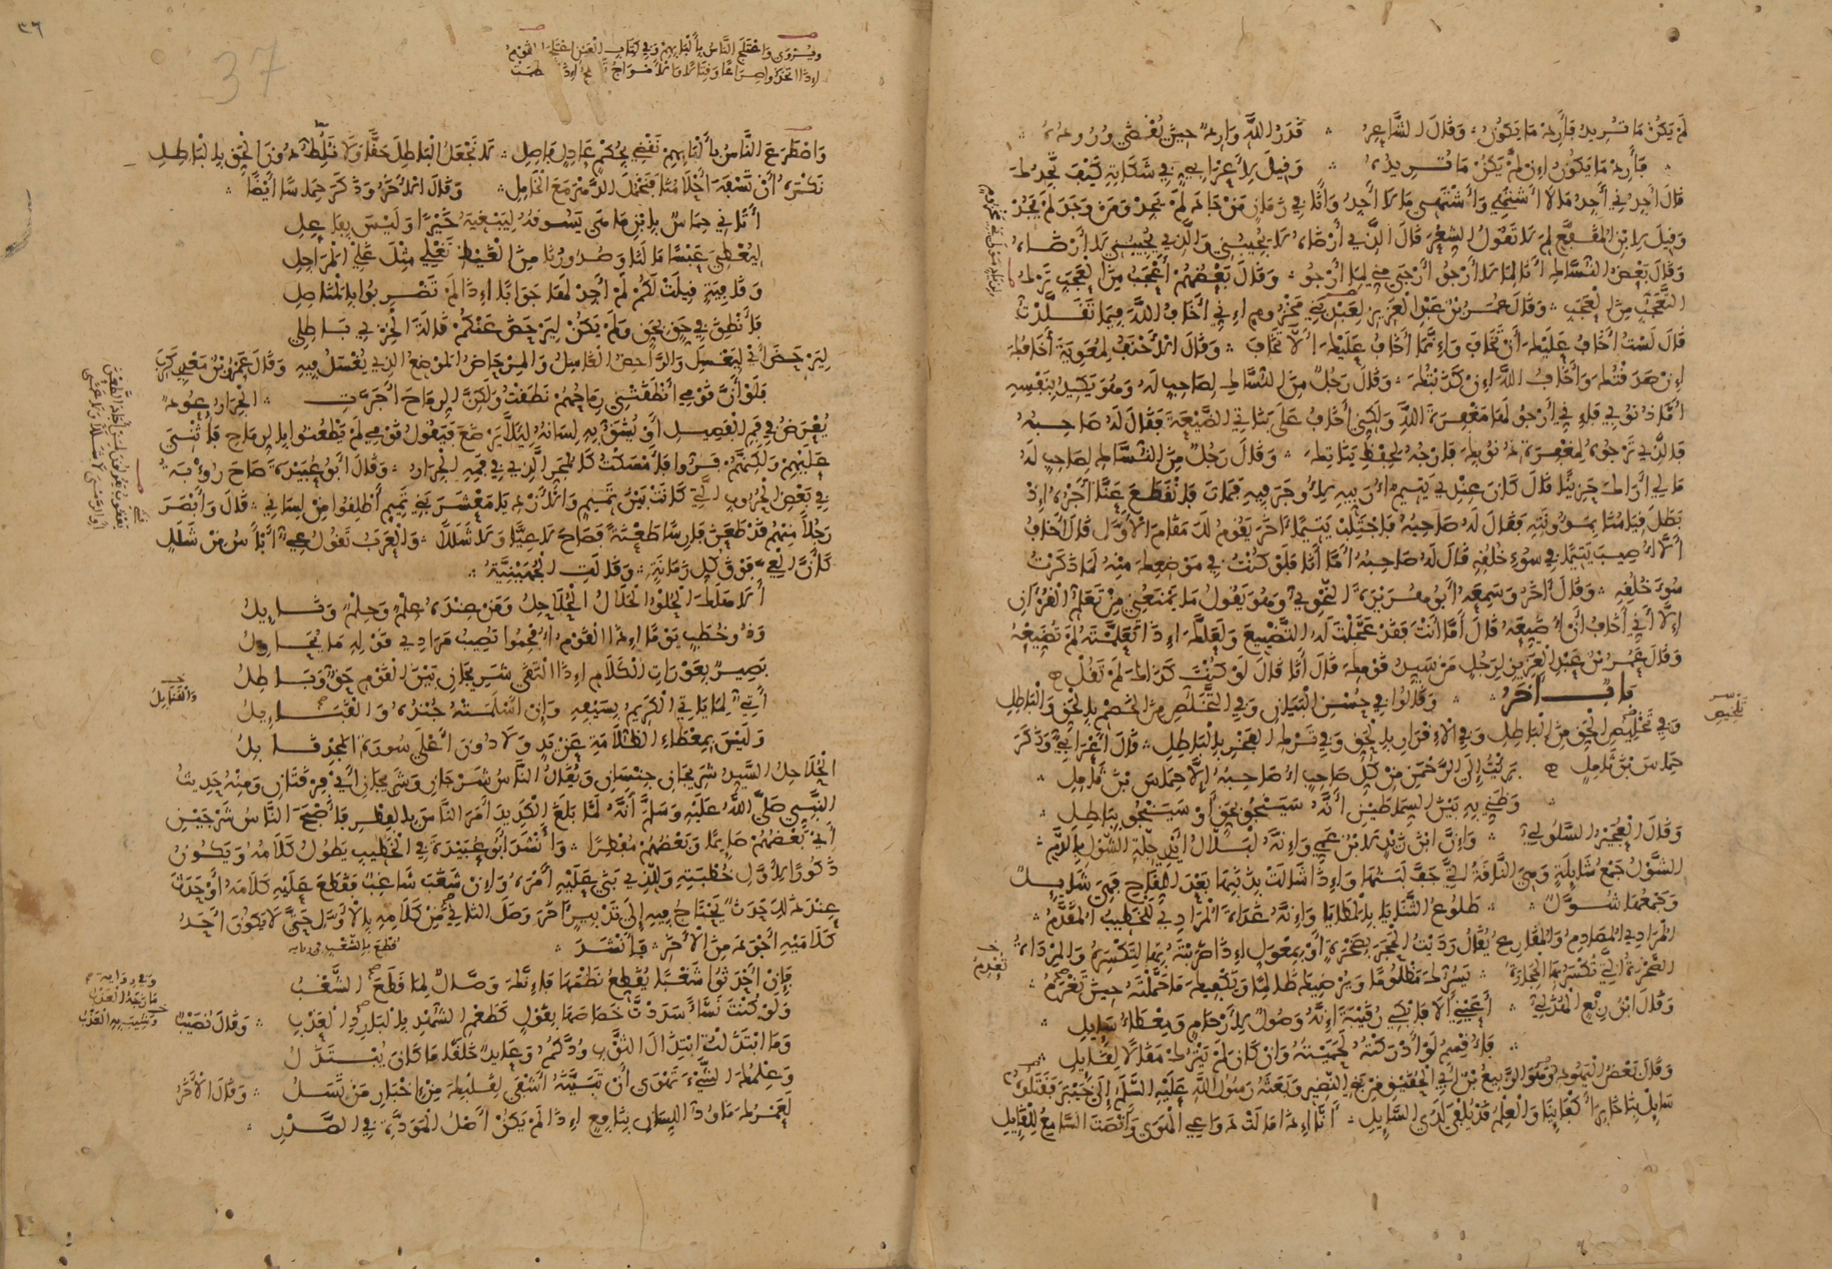 لَمْ يَكُنْ مَا تُرِيدُ فَأَرِدْ مَا يَكُونُ وَقَالَ الشَّاعِرُ قَدَرُ اللَّهِ وَارِدٌ حِينَ يُقْضَى وُرُودُهُ
فَأَرِدْ مَا يَكُونُ إِنْ لَمْ يَكُنْ مَا تُرِيدُهُ وَقِيلَ لِأَعْرَابِيٍّ فِي شَكَاتِهِ كَيْفَ تَجِدُكَ
قَالَ أَجِدُنِي أَجِدُ مَا لَا أَشْتَهِي وَأَشْتَهِي مَا لَا أَجِدُ وَأَنَا فِي زَمَانٍ مَنْ جَادَ لَمْ يَجِدْ وَمَنْ وَجَدَ لَمْ يَجُدْ
وَقِيلَ لِابْنِ الْمُقَفَّعِ لِمَ لَا تَقُولُ الشِّعْرَ قَالَ الَّذِي أَرْضَاهُ لَا يَجِيئُنِي وَالَّذِي يَجِيئُنِي لَا أَرْضَاهُ
وَقَالَ بَعْضُ النُّسَّاكِ أَنَا لِمَا لَا أَرْجُو أَرْجَى مِنِّي لِمَا أَرْجُو وَقَالَ بَعْضُهُمْ أَعْجَبُ مِنَ الْعَجَبِ تَرْكُ
التَّعَجُّبِ مِنَ الْعَجَبِ وَقَالَ عُمَرُ بْنُ عَبْدِ الْعَزِيزِ لِعَبْدِ بَنِي مَخْزُومٍ إِنِّي أَخَافُ اللَّهَ فِيمَا تَقَلَّدْتُ
قَالَ لَسْتُ أَخَافُ عَلَيْكَ أَنْ تَخَافَ وَإِنَّمَا أَخَافُ عَلَيْكَ أَلَّا تَخَافَ وَقَالَ الْأَحْنَفُ لِمُعَوِيَةَ أَخَافُكَ
إِنْ صَدَقْتُكَ وَأَخَافُ اللَّهَ إِنْ كَذَبْتُكَ وَقَالَ رَجُلٌ مِنَ النُّسَّاكِ لِصَاحِبٍ لَهُ وَهُوَ يَكِيدُ بِنَفْسِهِ
أَمَّا ذُنُوبِي فَإِنِّي أَرْجُو لَهَا مَغْفِرَةَ اللَّهِ وَلَكِنِّي أَخَافُ عَلَى بَنَاتِي الضَّيْعَةَ فَقَالَ لَهُ صَاحِبُهُ
فَالَّذِي تَرْجُوهُ لِمَغْفِرَةِ ذُنُوبِكَ فَارْجُهُ لِحِفْظِ بَنَاتِكَ وَقَالَ رَجُلٌ مِنَ النُّسَّاكِ لِصَاحِبٍ لَهُ
مَا لِي أَرَاكَ حَزِينًا قَالَ كَانَ عِنْدِي يَتِيمٌ أُرَبِّيهِ لِأُوجَرَ فِيهِ فَمَاتَ فَانْقَطَعَ عَنَّا أَجْرُهُ إِذْ
بَطَلَ قِيَامُنَا بِمَؤُونَتِهِ فَقَالَ لَهُ صَاحِبُهُ فَاجْتَلِبْ يَتِيمًا آخَرَ يَقُومُ لَكَ مَقَامَ الْأَوَّلِ قَالَ أَخَافُ
أَلَّا أُصِيبَ يَتِيمًا فِي سُوءِ خُلُقِهِ قَالَ لَهُ صَاحِبُهُ أَمَّا أَنَا فَلَوْ كُنْتُ فِي مَوْضِعِكَ مِنْهُ لَمَا ذَكَرْتُ
سُوءَ خُلُقِهِ وَقَالَ آخَرُ وَسَمِعَهُ أَبُو هُرَيْرَةَ النَّحْوِيُّ وَهُوَ يَقُولُ مَا يَمْنَعُنِي مِنْ تَعَلُّمِ الْقُرْآنِ
إِلَّا أَنِّي أَخَافُ أَنْ أُضَيِّعَهُ قَالَ أَمَّا أَنْتَ فَقَدْ عَجَّلْتَ لَهُ التَّضْيِيعَ وَلَعَلَّكَ إِذَا تَعَلَّمْتَهُ لَمْ تُضَيِّعْهُ
وَقَالَ عُمَرُ بْنُ عَبْدِ الْعَزِيزِ لِرَجُلٍ مَنْ سَيِّدُ قَوْمِكَ قَالَ أَنَا قَالَ لَوْ كُنْتَ كَذَاكَ لَمْ تَقُلْ
بَابٌ آخَرُ وَقَالُوا فِي حُسْنِ الْبَيَانِ وَفِي التَّخَلُّصِ مِنَ الْخَصْمِ بِالْحَقِّ وَالْبَاطِلِ
وَفِي تَخْلِيصِ الْحَقِّ مِنَ الْبَاطِلِ وَفِي الْإِقْرَارِ بِالْحَقِّ وَفِي تَرْكِ الْفَخْرِ بِالْبَاطِلِ قَالَ أَعْرَابِيٌّ وَذَكَرَ
حِمَاسَ بْنَ ثَامِلٍ بَرِئْتُ إِلَى الرَّحْمَنِ مِنْ كُلِّ صَاحِبٍ أُصَاحِبُهُ إِلَّا حِمَاسَ بْنَ ثَامِلِ
وَظَنِّي بِهِ بَيْنَ السِّمَاطَيْنِ أَنَّهُ سَيَنْجُو بِحَقٍّ أَوْ سَيَنْجُو بِبَاطِلِ
وَقَالَ الْعُجَيْرُ السَّلُولِيُّ وَإِنَّ ابْنَ زَيْدٍ لَابْنُ عَمِّي وَإِنَّهُ لَبَلَّالُ أَيْدِي جِلَّةِ الشَّوْلِ بِالدَّمِ
الشَّوْلُ جَمْعُ شَائِلَةٍ وَهِيَ النَّاقَةُ الَّتِي جَفَّ لَبَنُهَا وَإِذَا شَالَتْ بِذَنَبِهَا بَعْدَ اللِّقَاحِ فَهِيَ شَائِلٌ
وَجَمْعُهَا شُوَّلٌ طَلُوعُ الثَّنَايَا بِالْمَطَايَا وَإِنَّهُ غَدَاةَ الْمُرَادِي لَلْخَطِيبُ الْمُقَدَّمُ
الْمُرَادِي الْمَصَادِمُ وَالْمَقَارِعُ يُقَالُ رَدَيْتُ الْحَجَرَ بِصَخْرَةٍ أَوْ بِمِعْوَلٍ إِذَا ضَرَبْتَهُ بِهَا لِتَكْسِرَهُ وَالْمِرْدَاةُ
الصَّخْرَةُ الَّتِي تُكْسَرُ بِهَا الْحِجَارَةُ يَسُرُّكَ مَظْلُومًا وَيُرْضِيكَ ظَالِمًا وَيَكْفِيكَ مَا حَمَّلْتَهُ حِينَ تَغْرَمُ
وَقَالَ ابْنُ رِبْعٍ الْهُذَلِيُّ أَعَيْنَيَّ أَلَا فَابْكِي رُقَيْبَةَ إِنَّهُ وَصُولٌ لِأَرْحَامٍ وَمِعْطَاءُ سَائِلِ
فَأُقْسِمُ لَوْ أَدْرَكْتُهُ لَحَمَيْتُهُ وَإِنْ كَانَ لَمْ يَتْرُكْ مَقَالًا لِقَائِلِ
وَقَالَ بَعْضُ الْيَهُودِ وَهُوَ الرَّبِيعُ بْنُ أَبِي الْحُقَيْقِ مِنْ بَنِي النَّضِيرِ وَبَعَثَهُ رَسُولُ اللَّهِ عَلَيْهِ السَّلَمُ إِلَى خَيْبَرَ فَقَتَلُوهُ
سَائِلْ بِنَا خَابِرَ أَكْفَائِنَا وَالْعِلْمُ قَدْ يُلْفَى لَدَى السَّائِلِ أَنَّا إِذَا مَالَتْ دَوَاعِي الْهَوَى وَأَنْصَتَ السَّامِعُ لِلْقَائِلِ
تَلْخِيصِ
تُغْرَمُ
٣٦
37
وَيُرْوَى وَاعْتَلَجَ النَّاسُ بِأَلْبَابِهِمْ وَفِي كِتَابِ الْعَيْنِ اعْتَلَجَ الْقَوْمُ
إِذَا اتَّخَذُوا صِرَاعًا وَقِتَالًا وَالْأَمْوَاجُ
وَاصْطَرَعَ النَّاسُ بِأَلْبَابِهِمْ نَقْضِي بِحُكْمٍ عَادِلٍ فَاصِلِ لَا نَجْعَلُ الْبَاطِلَ حَقًّا وَلَا نَلُطُّ دُونَ الْحَقِّ بِالْبَاطِلِ
نَكْرَهُ أَنْ تَسْفَهَ أَحْلَامُنَا فَنَخْمُلَ الدَّهْرَ مَعَ الْخَامِلِ وَقَالَ الْآخَرُ وَذَكَرَ حِمَاسًا أَيْضًا
أَتَانِي حِمَاسٌ بِابْنِ مَاهٍ يَسُوقُهُ لِيَبْغِيَهُ خَيْرًا وَلَيْسَ بِفَاعِلِ
لِيُعْطِيَ عَبْسًا مَالَنَا وَصُدُورُنَا مِنَ الْغَيْظِ تَغْلِي مِثْلَ غَلْيِ الْمَرَاجِلِ
وَقَافِيَةٍ قِيلَتْ لَكُمْ لَمْ أَجِدْ لَهَا جَوَابًا إِذَا لَمْ تَضْرِبُوا بِالْمَنَاصِلِ
فَأَنْطِقُ فِي حَقٍّ بِحَقٍّ وَلَمْ يَكُنْ لِيَرْحَضَ عَنْكُمْ قَالَةَ الْخِزْيِ بَاطِلِي
لِيَرْحَضَ أَيْ لِيَغْسِلَ وَالرَّاحِضُ الْغَاسِلُ وَالْمِرْحَاضُ الْمَوْضِعُ الَّذِي يُغْسَلُ فِيهِ وَقَالَ عَمْرُو بْنُ مَعْدِي كَرِبَ
فَلَوْ أَنَّ قَوْمِي أَنْطَقَتْنِي رِمَاحُهُمْ نَطَقْتُ وَلَكِنَّ الرِّمَاحَ أَجَرَّتِ الْجِرَارُ عُودٌ
يُعْرَضُ فِي فَمِ الْفَصِيلِ أَوْ يُشَقُّ بِهِ لِسَانُهُ لِئَلَّا يَرْضَعَ فَيَقُولُ قَوْمِي لَمْ يَطْعُنُوا بِالرِّمَاحِ فَأُثْنِيَ
عَلَيْهِمْ وَلَكِنَّهُمْ فَرُّوا فَأَمْسَكْتُ كَالْمُجَرِّ الَّذِي فِي فَمِهِ الْجِرَارُ وَقَالَ أَبُو عُبَيْدَةَ صَاحَ رُؤْبَةُ
فِي بَعْضِ الْحُرُوبِ الَّتِي كَانَتْ بَيْنَ تَمِيمٍ وَالْأَزْدِ يَا مَعْشَرَ بَنِي تَمِيمٍ أَطْلِقُوا مِنْ لِسَانِي قَالَ وَأَبْصَرَ
رَجُلًا مِنْهُمْ قَدْ طَعَنَ فَارِسًا طَعْنَةً فَصَاحَ لَا عِيًّا وَلَا شَلَلًا وَالْعَرَبُ تَقُولُ عِيٌّ أَبْأَسُ مِنْ شَلَلٍ
كَأَنَّ الْعِيَّ فَوْقَ كُلِّ زَمَانَةٍ وَقَالَتِ الْجُهَيْنِيَّةُ
أَلَا هَلَكَ الْحُلْوُ الْحَلَالُ الْحُلَاحِلُ وَمَنْ عِنْدَهُ عِلْمٌ وَحِلْمٌ وَنَائِلُ
وَذُو خُطَبٍ يَوْمًا إِذَا الْقَوْمُ أُفْحِمُوا تُصِيبُ مَرَادِي قَوْلِهِ مَا يُحَاوِلُ
بَصِيرٌ بِعَوْرَاتِ الْكَلَامِ إِذَا الْتَقَى شَرِيجَانِ بَيْنَ الْقَوْمِ حَقٌّ وَبَاطِلُ
أَتِيٌّ لِمَا يَاتِي الْكَرِيمُ بِسَيْفِهِ وَإِنْ أَسْلَمَتْهُ جُنْدُهُ وَالْقَبَائِلُ
وَلَيْسَ بِمِعْطَاءِ الظُّلَامَةِ عَنْ يَدٍ وَلَا دُونَ أَعْلَى سُورَةِ الْمَجْدِ قَابِلُ
الْحُلَاحِلُ السَّيِّدُ شَرِيجَانِ جِنْسَانِ وَيُقَالُ النَّاسُ شَرْجَانِ وَشَرِيجَانِ أَيْ فِرْقَتَانِ وَمِنْهُ حَدِيثُ
النَّبِيِّ صَلَّى اللَّهُ عَلَيْهِ وَسَلَّمَ أَنَّهُ لَمَّا بَلَغَ الْكَدِيدَ أَمَرَ النَّاسَ بِالْفِطْرِ فَأَصْبَحَ النَّاسُ شَرْجَيْنِ
أَيْ بَعْضُهُمْ صَائِمًا وَبَعْضُهُمْ مُفْطِرًا وَأَنْشَدَ أَبُو عُبَيْدَةَ فِي الْخَطِيبِ يَطُولُ كَلَامُهُ وَيَكُونُ
ذَكُورًا لِأَوَّلِ خُطْبَتِهِ وَالَّذِي بَنَى عَلَيْهِ أَمْرَهُ وَإِنْ شَغَبَ شَاغِبٌ فَقَطَعَ عَلَيْهِ كَلَامَهُ أَوْ حَدَثَ
عِنْدَ ذَلِكَ حَدَثٌ يَحْتَاجُ فِيهِ إِلَى تَدْبِيرٍ آخَرَ وَصَلَ الثَّانِيَ مِنْ كَلَامِهِ بِالْأَوَّلِ حَتَّى لَا يَكُونَ أَحَدُ
كَلَامَيْهِ أَجْوَدَ مِنَ الْآخَرِ فَأَنْشَدَ
فَإِنْ أَحْدَثُوا شَغْبًا يُقَطِّعُ نَظْمَهَا فَإِنَّكَ وَصَّالٌ لِمَا قَطَعَ الشَّغْبُ
وَلَوْ كُنْتَ نَسَّاجًا سَدَدْتَ خَصَاصَهَا بِقَوْلٍ كَطَعْمِ الشَّهْدِ بِالْبَارِدِ الْعَذْبِ وَقَالَ نُصَيْبٌ
وَمَا ابْتَذَلْتُ ابْتِذَالَ الثَّوْبِ وُدَّكُمُ وَعَائِدٌ خَلَقًا مَا كَانَ يُبْتَذَلُ
وَعِلْمُكَ الشَّيْءَ تَهْوَى أَنْ تَبَيَّنَهُ أَشْفَى لِقَلْبِكَ مِنْ أَخْبَارِ مَنْ تَسَلُ وَقَالَ الْآخَرُ
لَعَمْرُكَ مَا وُدُّ اللِّسَانِ بِنَافِعٍ إِذَا لَمْ يَكُنْ أَصْلُ الْمَوَدَّةِ فِي الصَّدْرِ
وَالْقَنَابِلُ